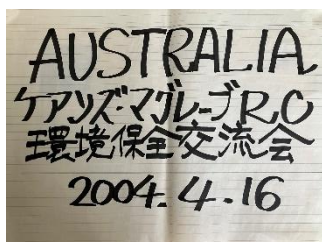 AUSTRALIA
ケアンズ・マグレーブRC
環境保全交流会
2004.4.16